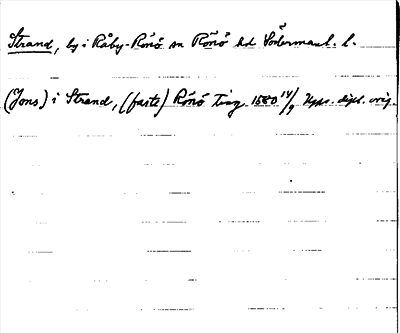 Strand, by i Råby-Rönö sn Rönö hd Södermanl. l.
(Jons) i Strand, (faste) Rönö ting 1580 14/9 Upps. dipl. orig.